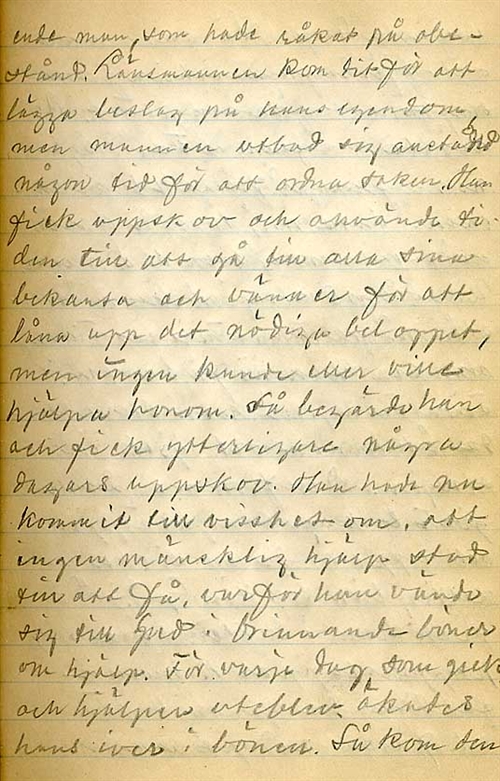 ende man, som hade råkat på obe-
stånd. Länsmannen kom dit för att
lägga beslag på hans egendom,
men mannen utbad sig anstånd
någon tid för att ordna saken. Han
fick uppskov och använde ti-
den till att gå till alla sina
bekanta och vänner för att
låna upp det nödiga beloppet,
men ingen kunde eller ville
hjälpa honom. Så begärde han
och fick ytterligare några
dagars uppskov. Han hade nu
kommit till visshet om, att
ingen mänsklig hjälp stod
till att få, varför han vände
sig till Gud i brinnande böner
om hjälp. För varje dag som gick
och hjälpen uteblev, ökades
hans iver i bönen. Så kom den